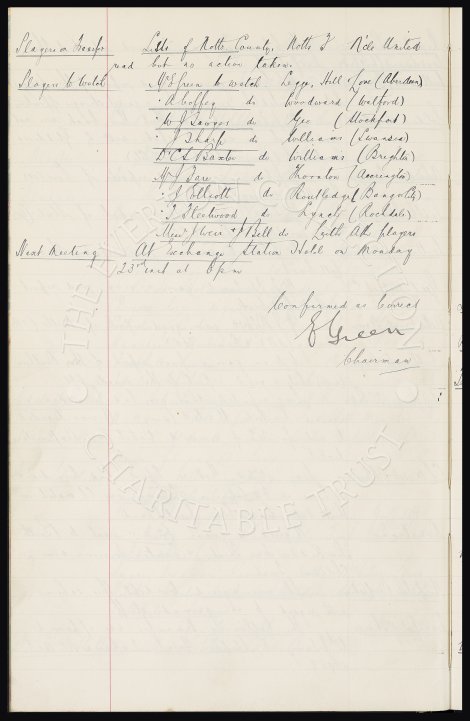 Players on Transfer Lists of Notts County, Notts F N'cle United
read but no action taken.
Players to Watch Mr E Green to watch Legge, Hill & Cox (Aberdeen)
" A Coffey do Woodward (Watford)
" W J Sawyer do Gee (Stockport)
" J Sharp do Williams (Swansea)
Dr C S Baxter do Williams (Brighton)
Mr J Fare do Thornton (Accrington)
" J Elliott do Routledge (Bangor City)
" T Fleetwood do Lynch (Rochdale)
Messrs J Weir & J Bell do Leith Ath players
Next Meeting At Exchange Station Hotel on Monday
23rd inst at 6 pm
Confirmed as Correct
E Green
Chairman
THE EVERTON COLLECTION
CHARITABLE TRUST